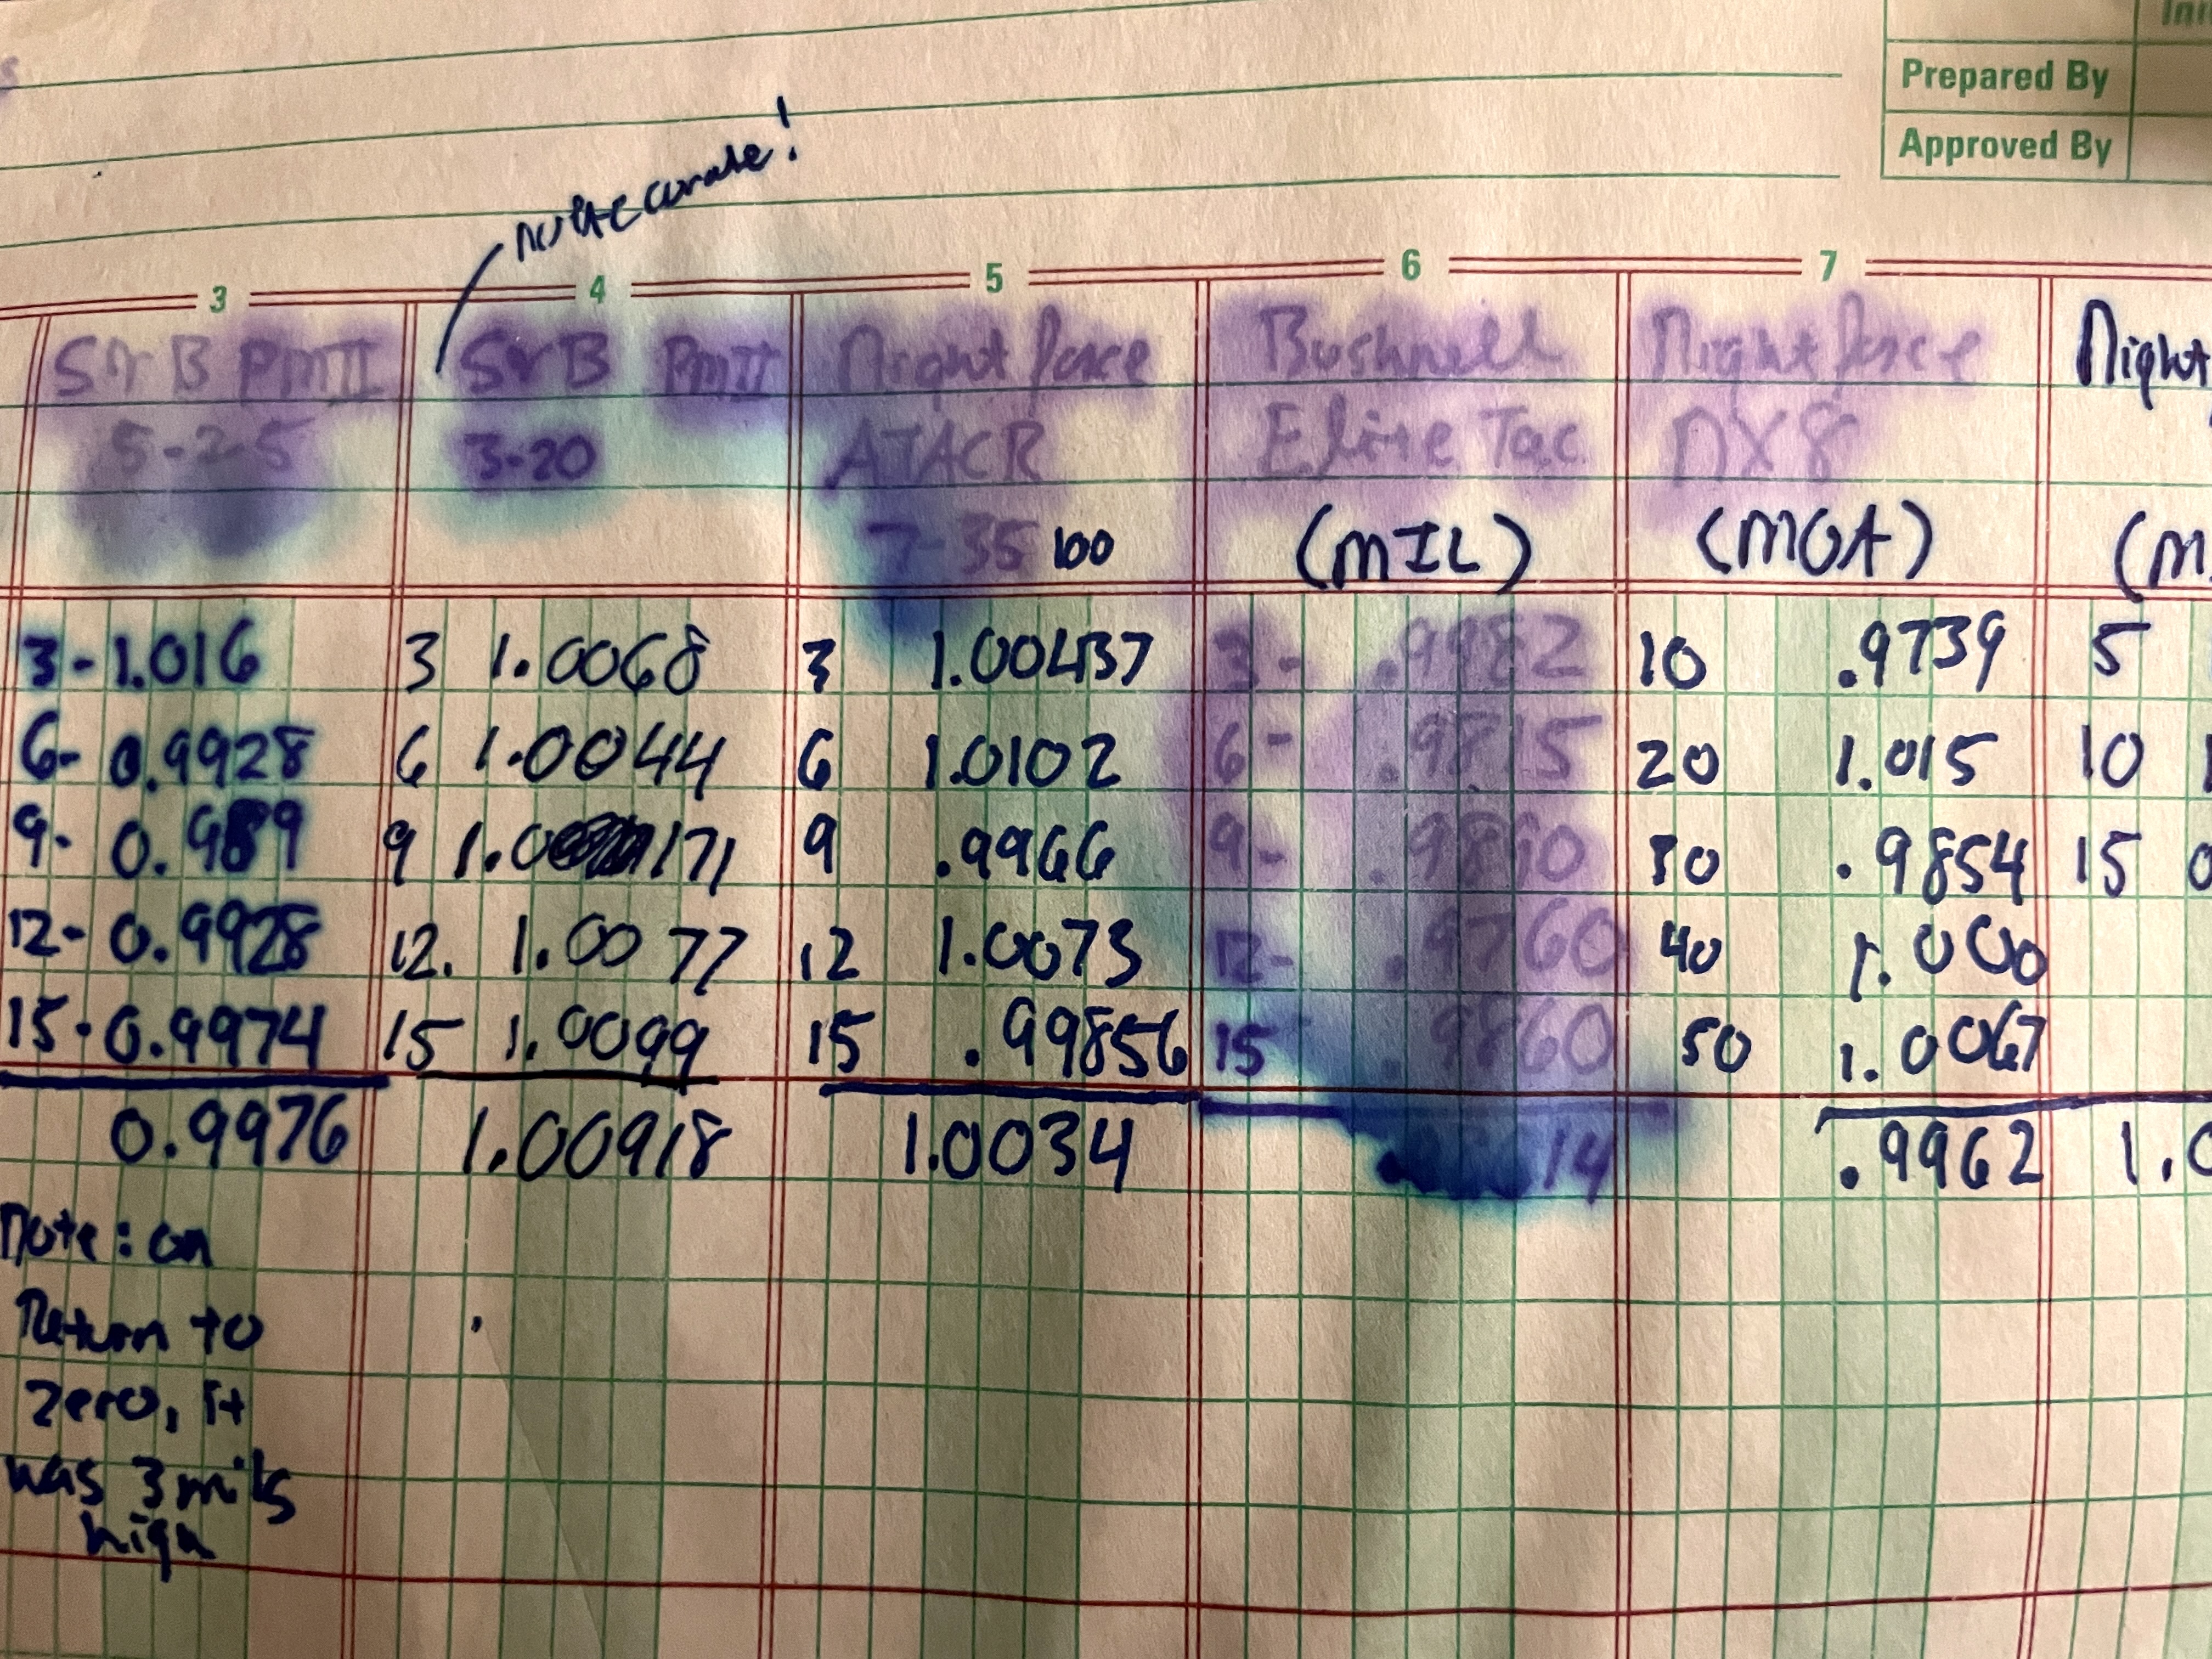 Prepared By
Approved By
not accurate!
3 4 5 6 7
S&B PMII S&B PMII Nightforce Bushnell Nightforce Night
5-25 3-20 ATACR Elite Tac NX8
7-35 100 (MIL) (MOA) (M
3-1.016 3 1.0068 3 1.00437 3- .9982 10 .9739 5
6- 0.9928 6 1.0044 6 1.0102 6- .9815 20 1.015 10
9- 0.989 9 1.0171 9 .9966 9- 30 .9854 15
12- 0.9928 12. 1.0077 12 1.0073 12- .9760 40 1.000
15- 0.9974 15 1.0099 15 .99856 15 .9860 50 1.0067
0.9976 1.00918 1.0034 14 .9962 1.0
Note: on
Return to
zero, it
was 3 mils
high